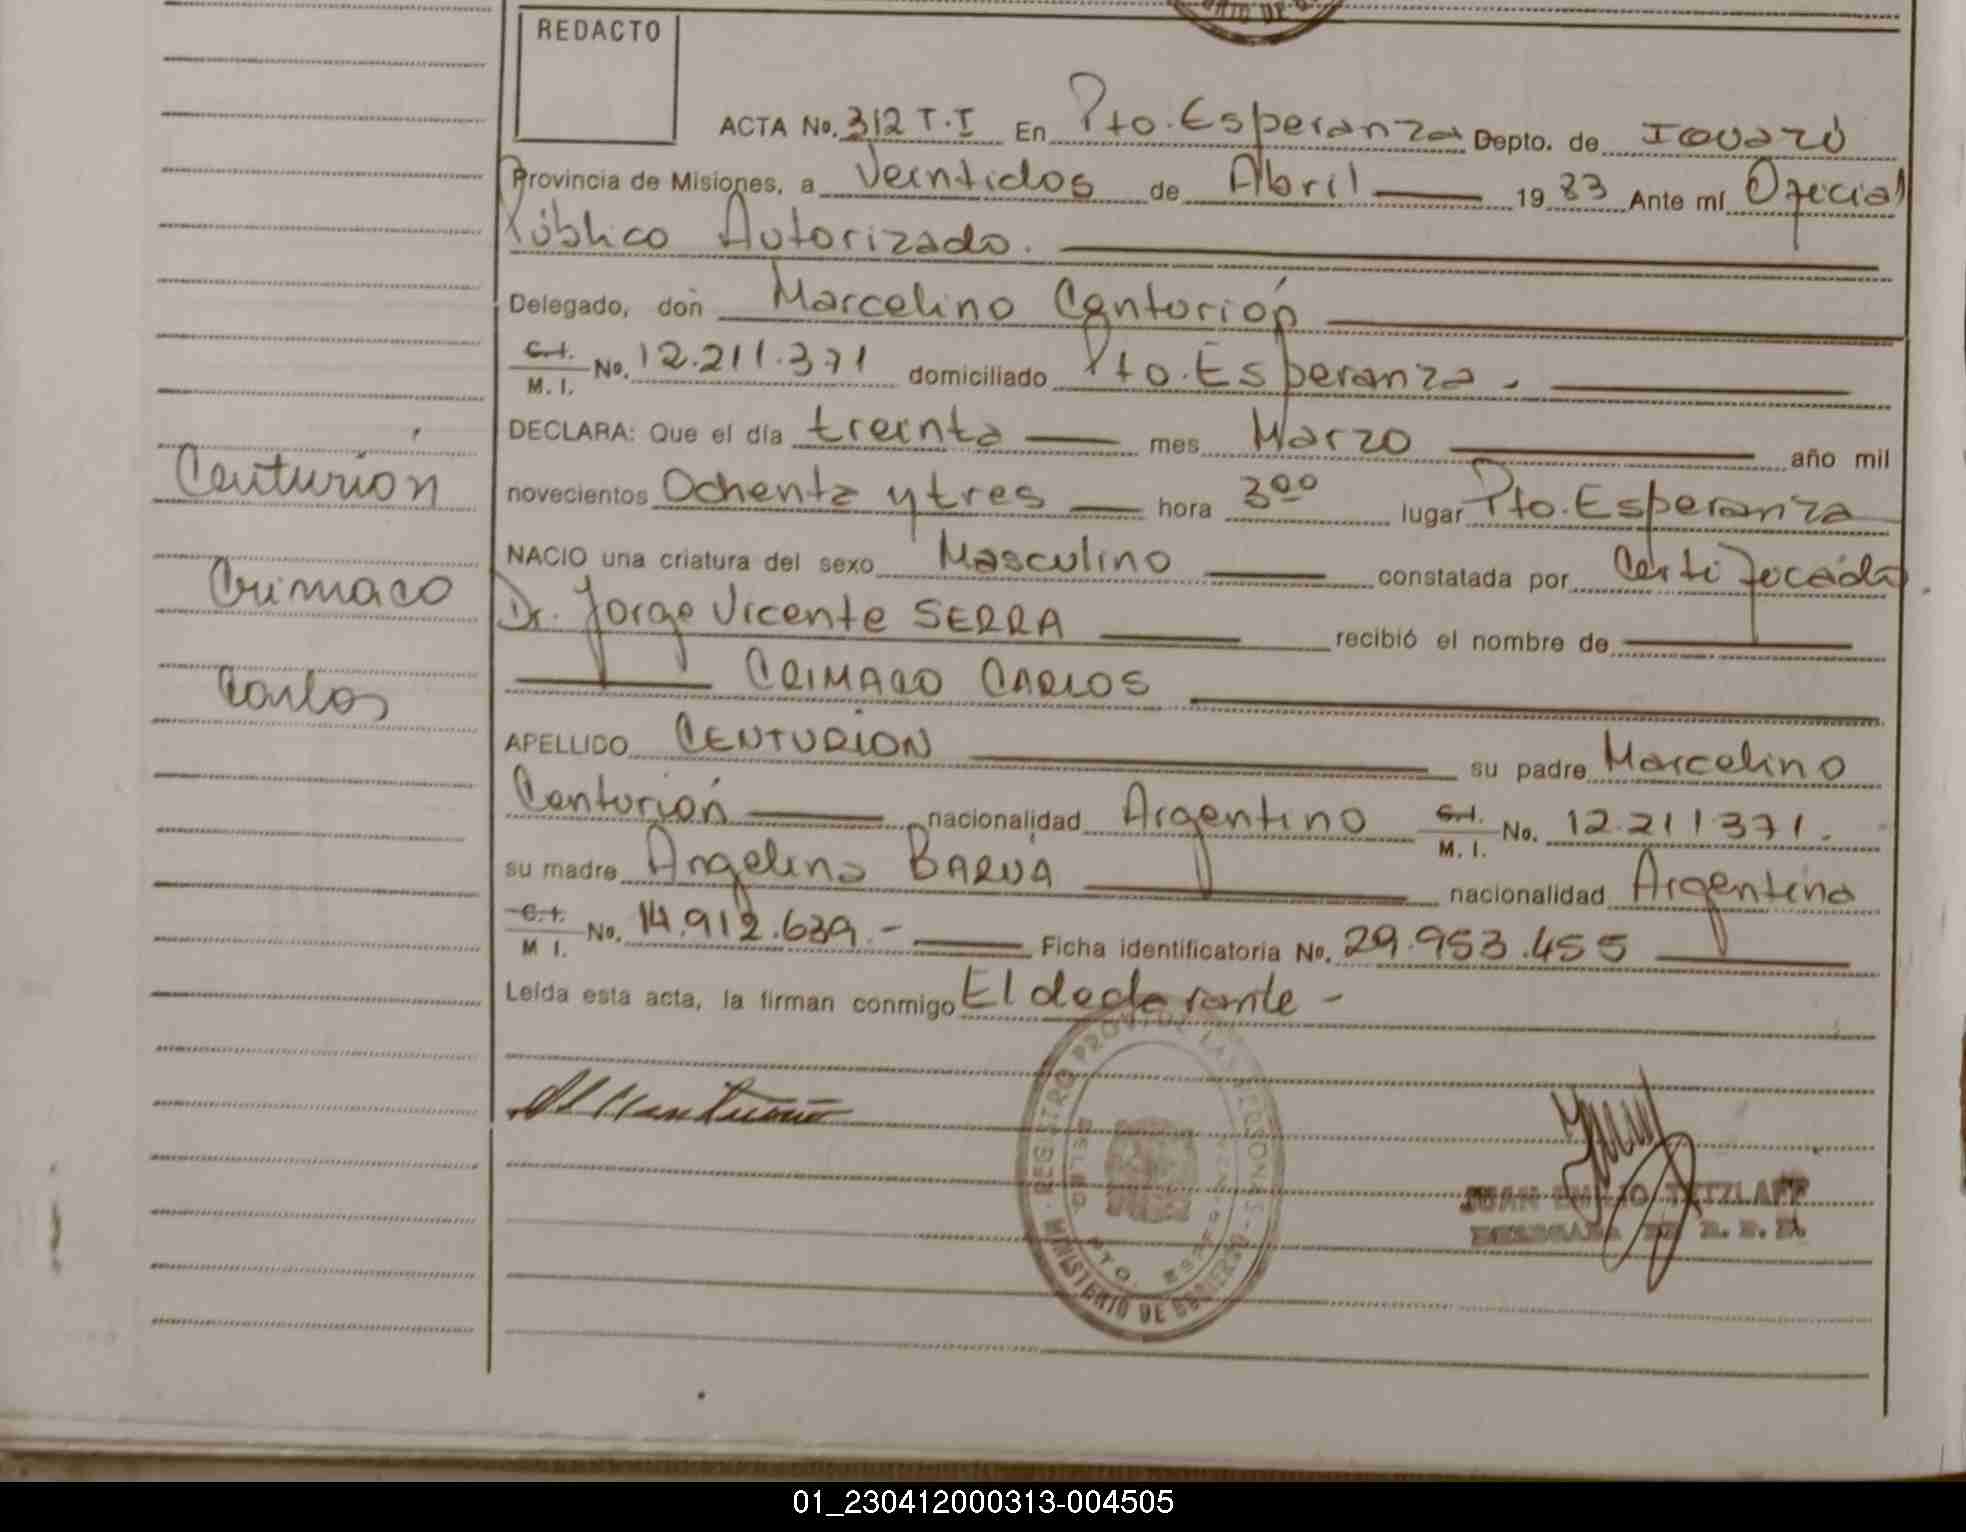 REDACTO
ACTA No. 312 T.I En Pto. Esperanza Depto. de Iguazú
Provincia de Misiones, a Veintidos de Abril 19 83 Ante mí Oficial
Público Autorizado.
Delegado, don Marcelino Centurión
C.I. M. I. No. 12.211.371 domiciliado Pto. Esperanza.
DECLARA: Que el día treinta mes Marzo año mil
novecientos Ochenta y tres hora 3 00 lugar Pto. Esperanza
NACIO una criatura del sexo Masculino constatada por Certificado
Dr. Jorge Vicente SERRA recibió el nombre de
CRIMACO CARLOS
APELLIDO CENTURIÓN su padre Marcelino
Centurión nacionalidad Argentino C.I. M. I. No. 12.211371.
su madre Angelina BARUA nacionalidad Argentina
C.I. M I. No. 14.912.639.- Ficha identificatoria No. 29.953.455
Leída esta acta, la firman conmigo El declarante -
Centurión
Crimaco
Carlos
REGISTRO PROV. DE LAS PERSONAS - MINISTERIO DE GOBIERNO
PTO. ESPERANZA
JUAN EMILIO TETZLAFF
DELEGADO DE R. P. P.
01_230412000313-004505